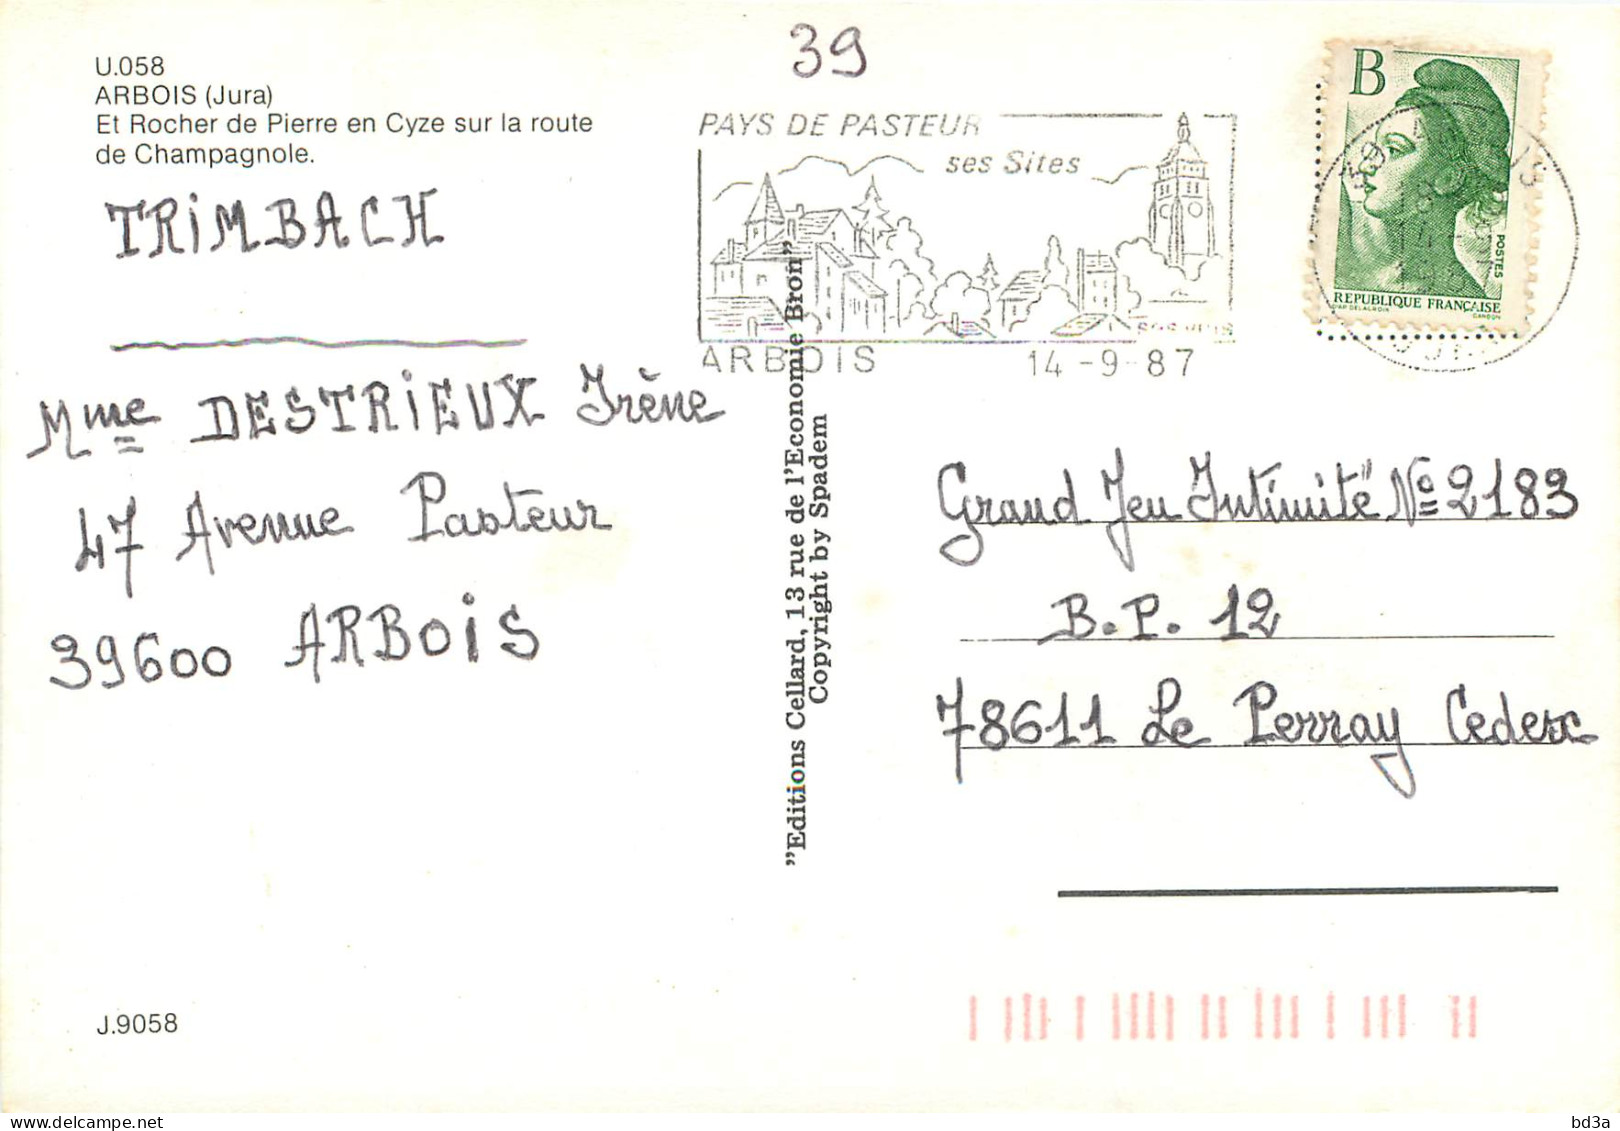 39
U.058
ARBOIS (Jura)
Et Rocher de Pierre en Cyze sur la route
de Champagnole.
TRiMBACH
Mme DESTRiEUX Irène
47 Avenue Pasteur
39600 ARBOiS
J.9058
"Editions Cellard, 13 rue de l'Economie Bron"
Copyright by Spadem
PAYS DE PASTEUR
ses Sites
ARBOIS 14-9-87
B
POSTES
REPUBLIQUE FRANÇAISE
D'AP DELACROIX GANDON
39
Grand Jeu Intimité" Nº 2183
B.P. 12
78611 Le Perray Cedex
bd3a